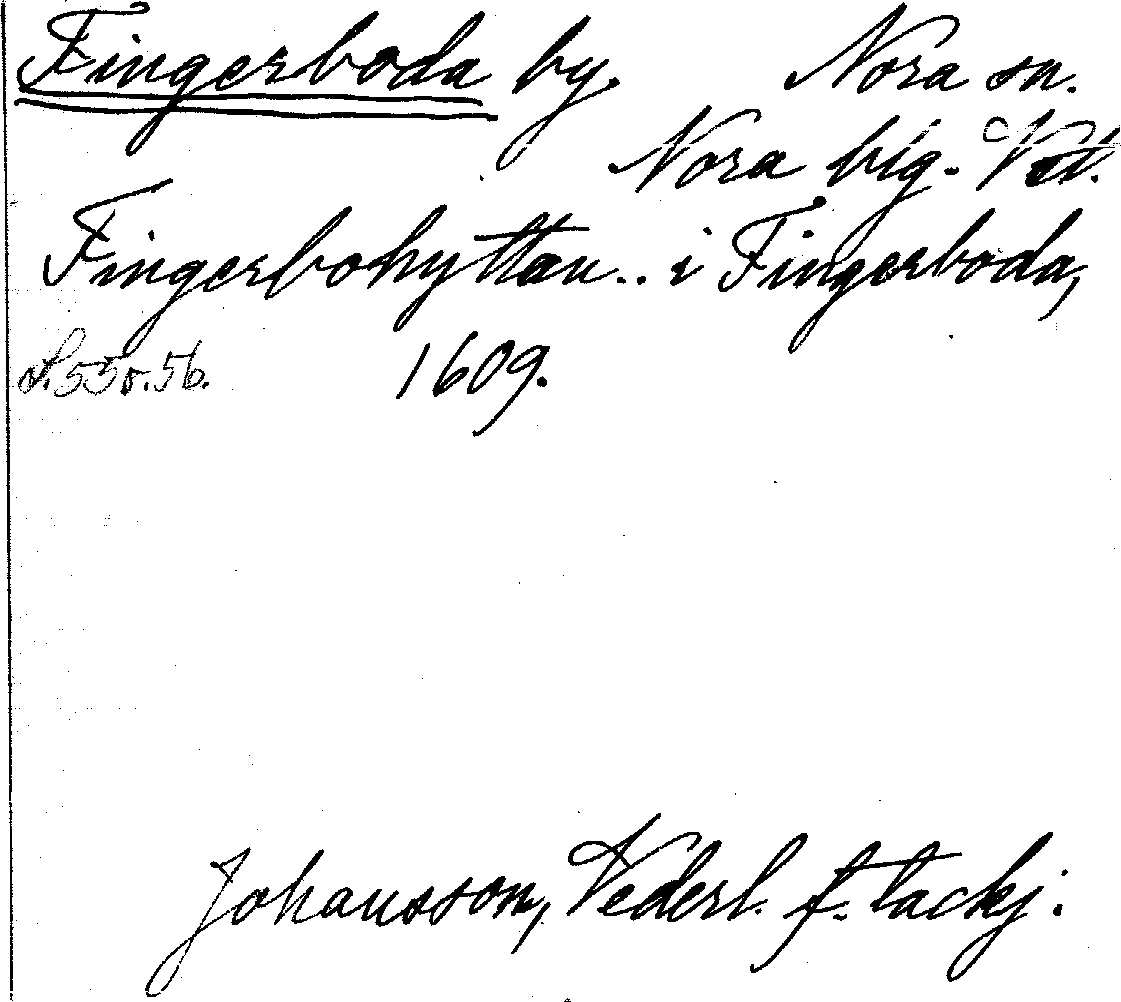 Fingerboda by. Nora sn.
Nora blg. Vstl.
Fingerbohyttan.. i Fingerboda,
S. 55 o. 56. 1609.
Johansson, Vederl. f. tackj.